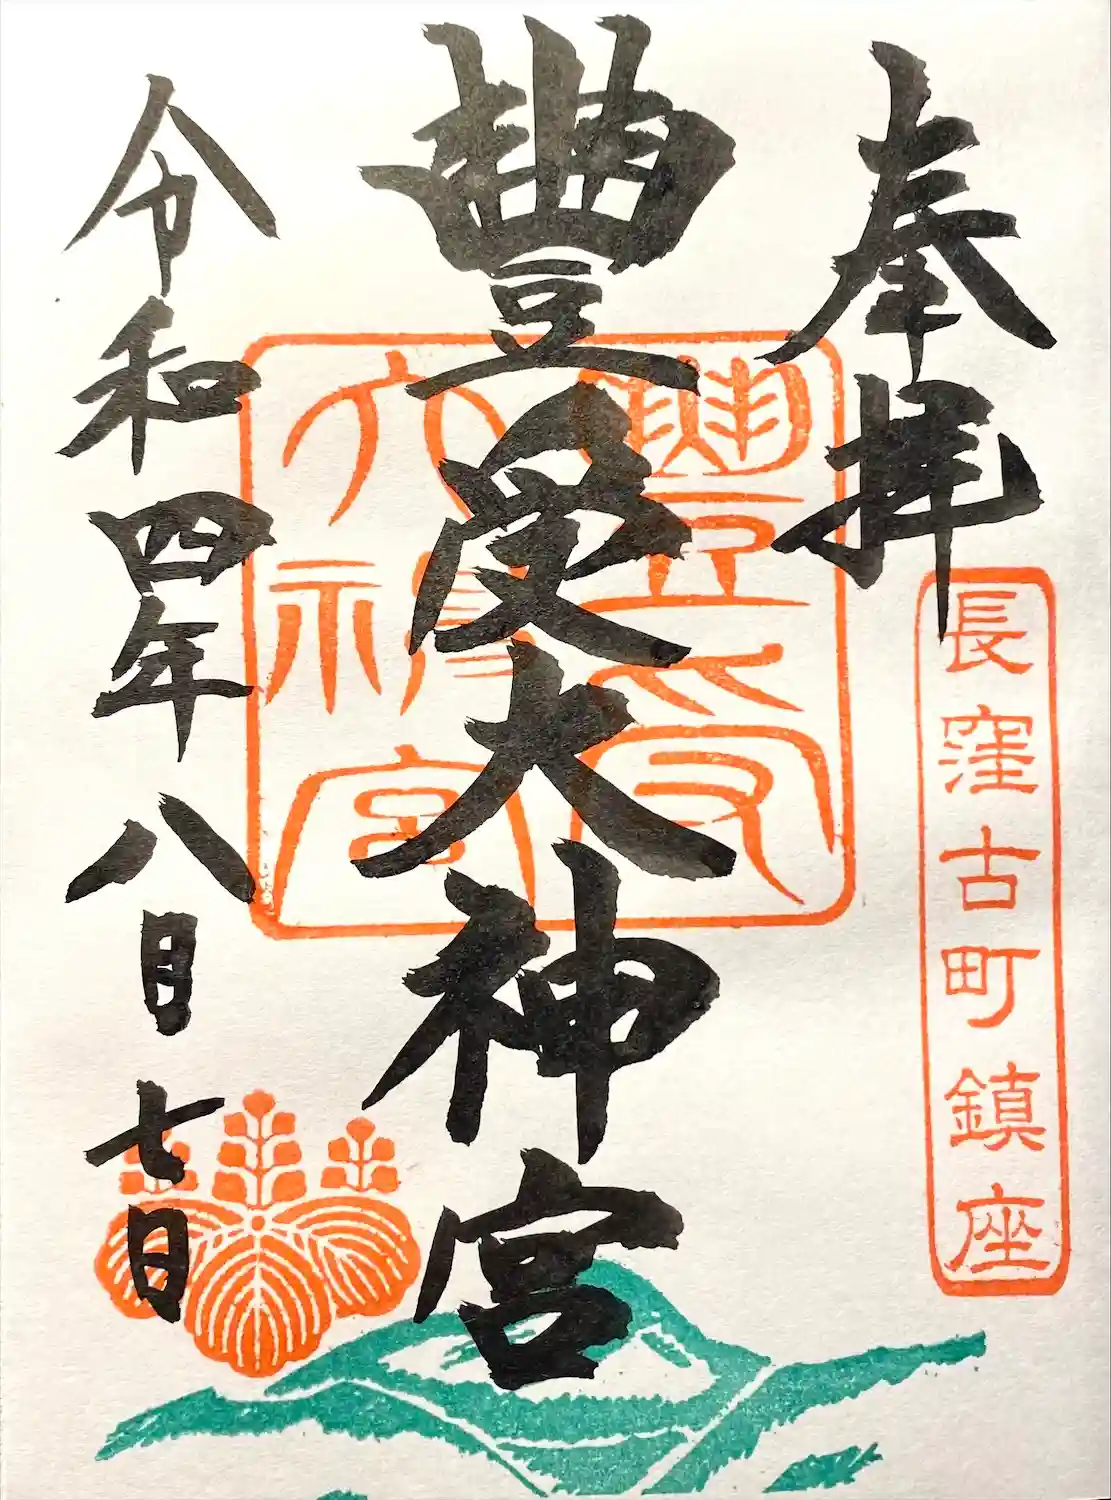 奉拜
長窪古町鎮座
豐受大神宮
豐受
大神宮
令和四年八月七日